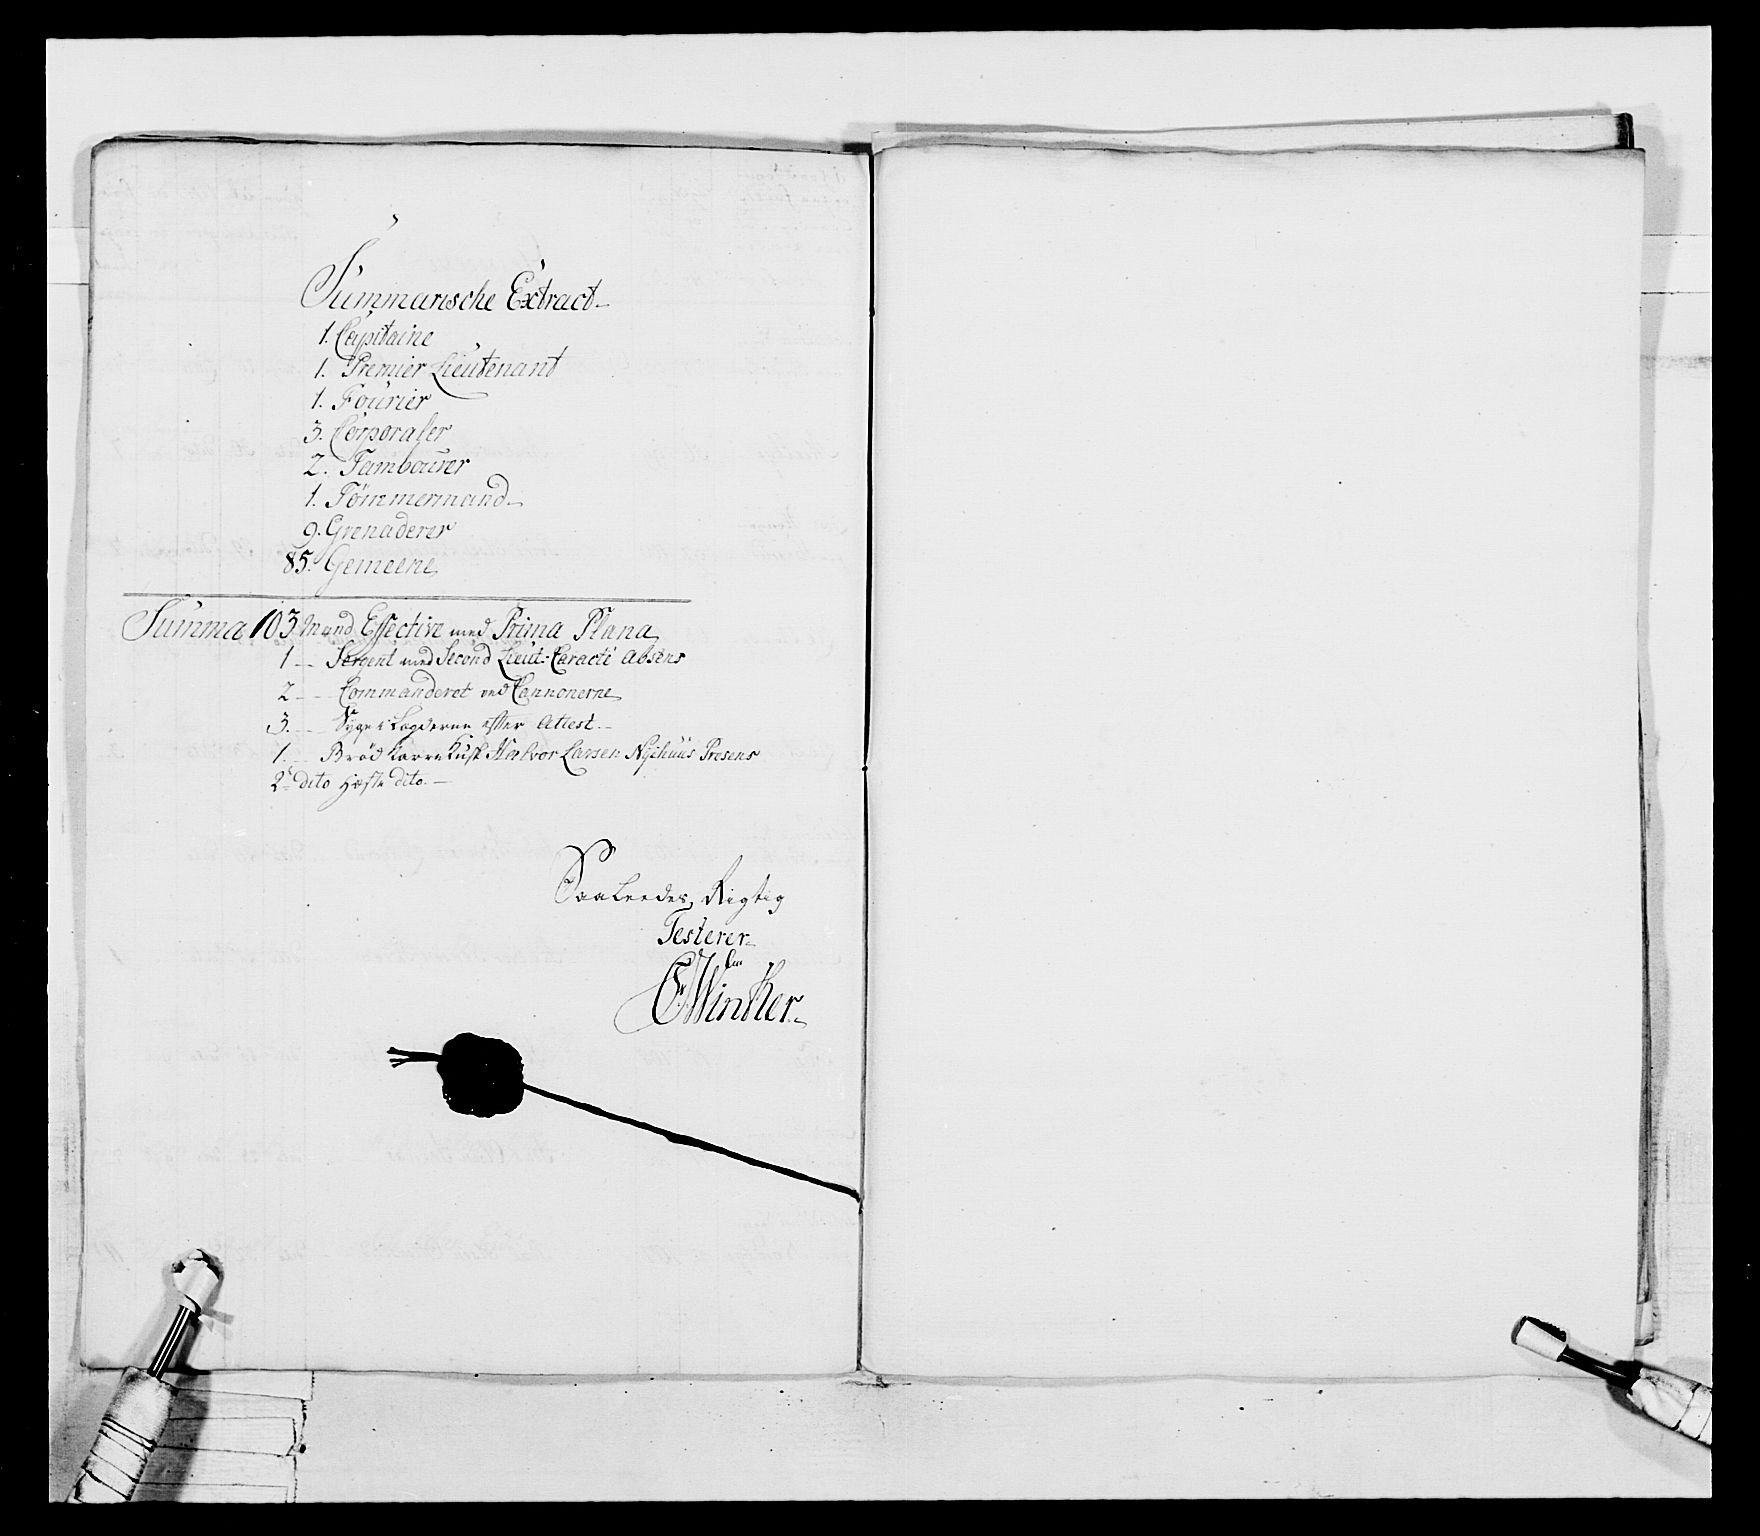 Summarische Extract
1. Capitaine
1. Premier Lieutenant
1. Fourier
3. Corporaler
2. Tambourer
1. Tömmermand
9. Grenaderer
85. Gemeene
Summa 103 Mand Effective med Prima Plana
1 Sergent med Second Lieut: Caracté absens
2 Commanderet ved Cannonerne
3. Syge i Lægderne efter attest
1. Brød Karre Kusk Halvor Larsen Nyehuus Presens
2de dito Hæste dito.
Saaleedes Rigtig
Testerer
Winther